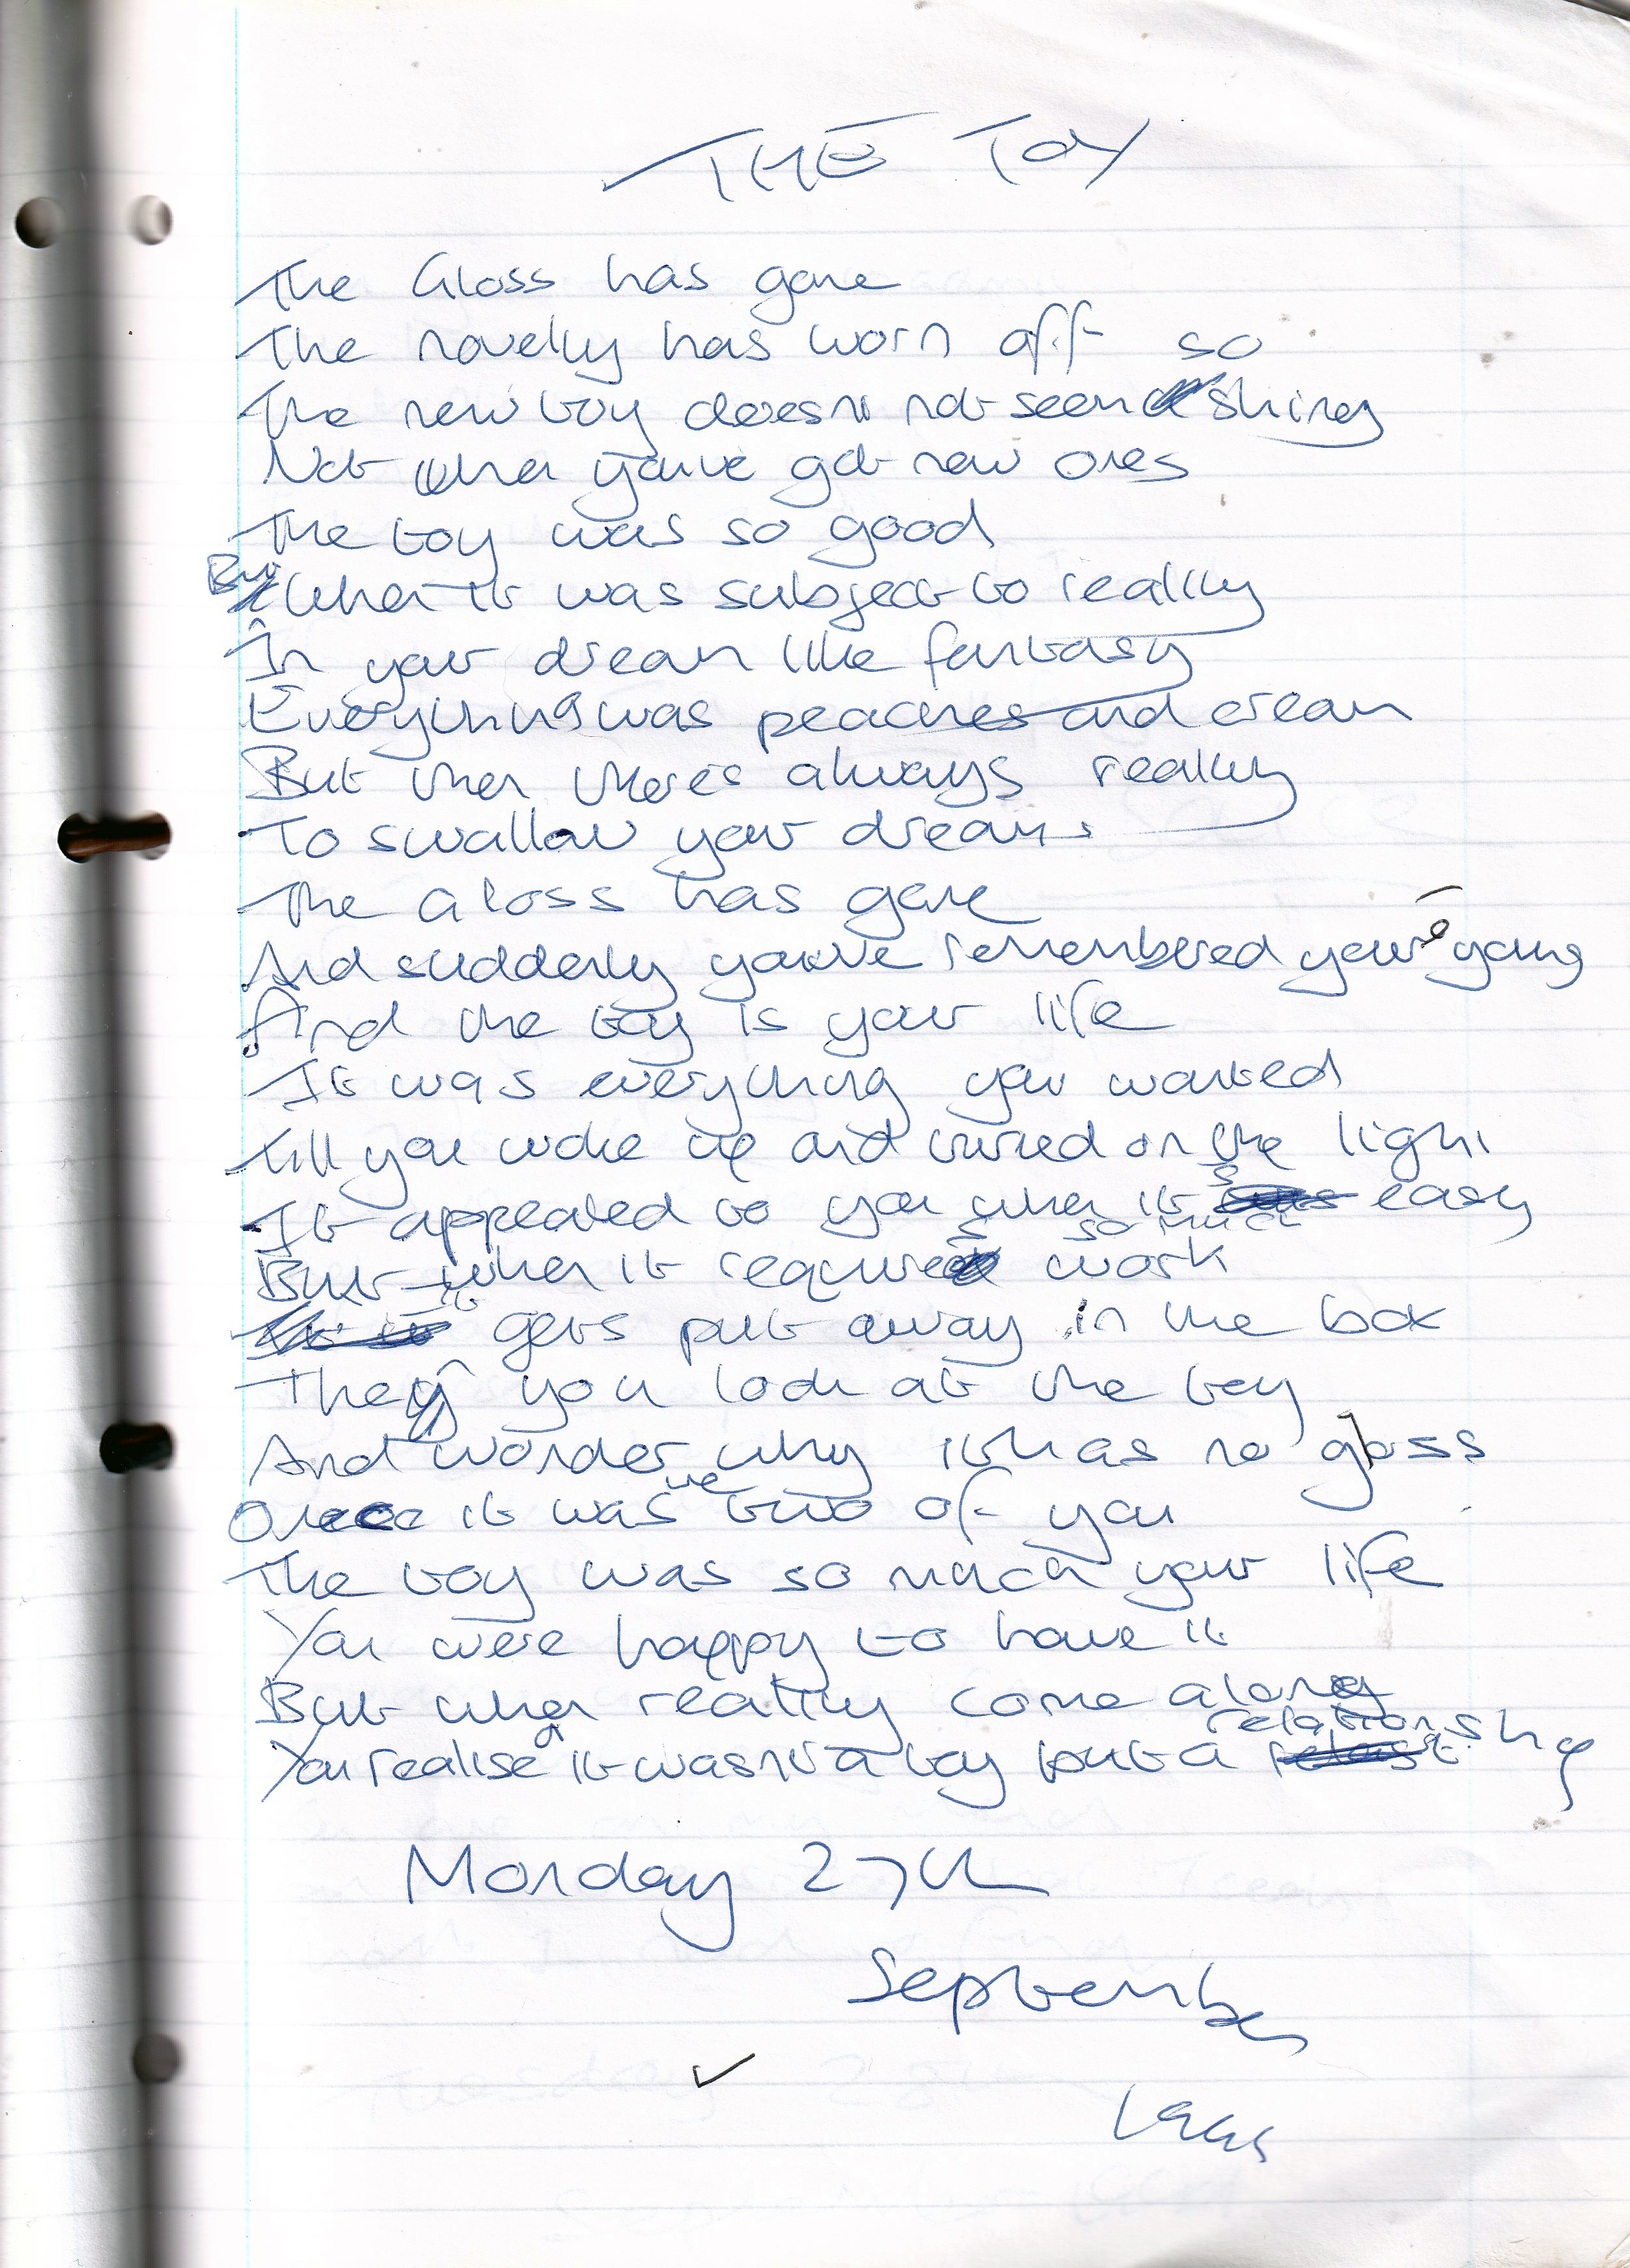 THE TOY
The Gloss has gone
The novelty has worn off so
The new toy does not seem shiney
Not when you've got new ones
The toy was so good
But when it was subject to reality
In your dream like fantasy
Everything was peaches and cream
But then there's always reality
To swallow your dreams
The Gloss has gone
And suddenly you've remembered your young
And the toy is your life
It was everything you wanted
till you woke up and turned on the light
It appealed to you when its easy
But when it requires so much work
it gets put away in the box
Then you look at the toy
And wonder why it has no gloss
Once it was true of you
The toy was so much your life
You were happy to have it
But when reality come along
You realise it wasn't a toy but a relationship
Monday 27th
September